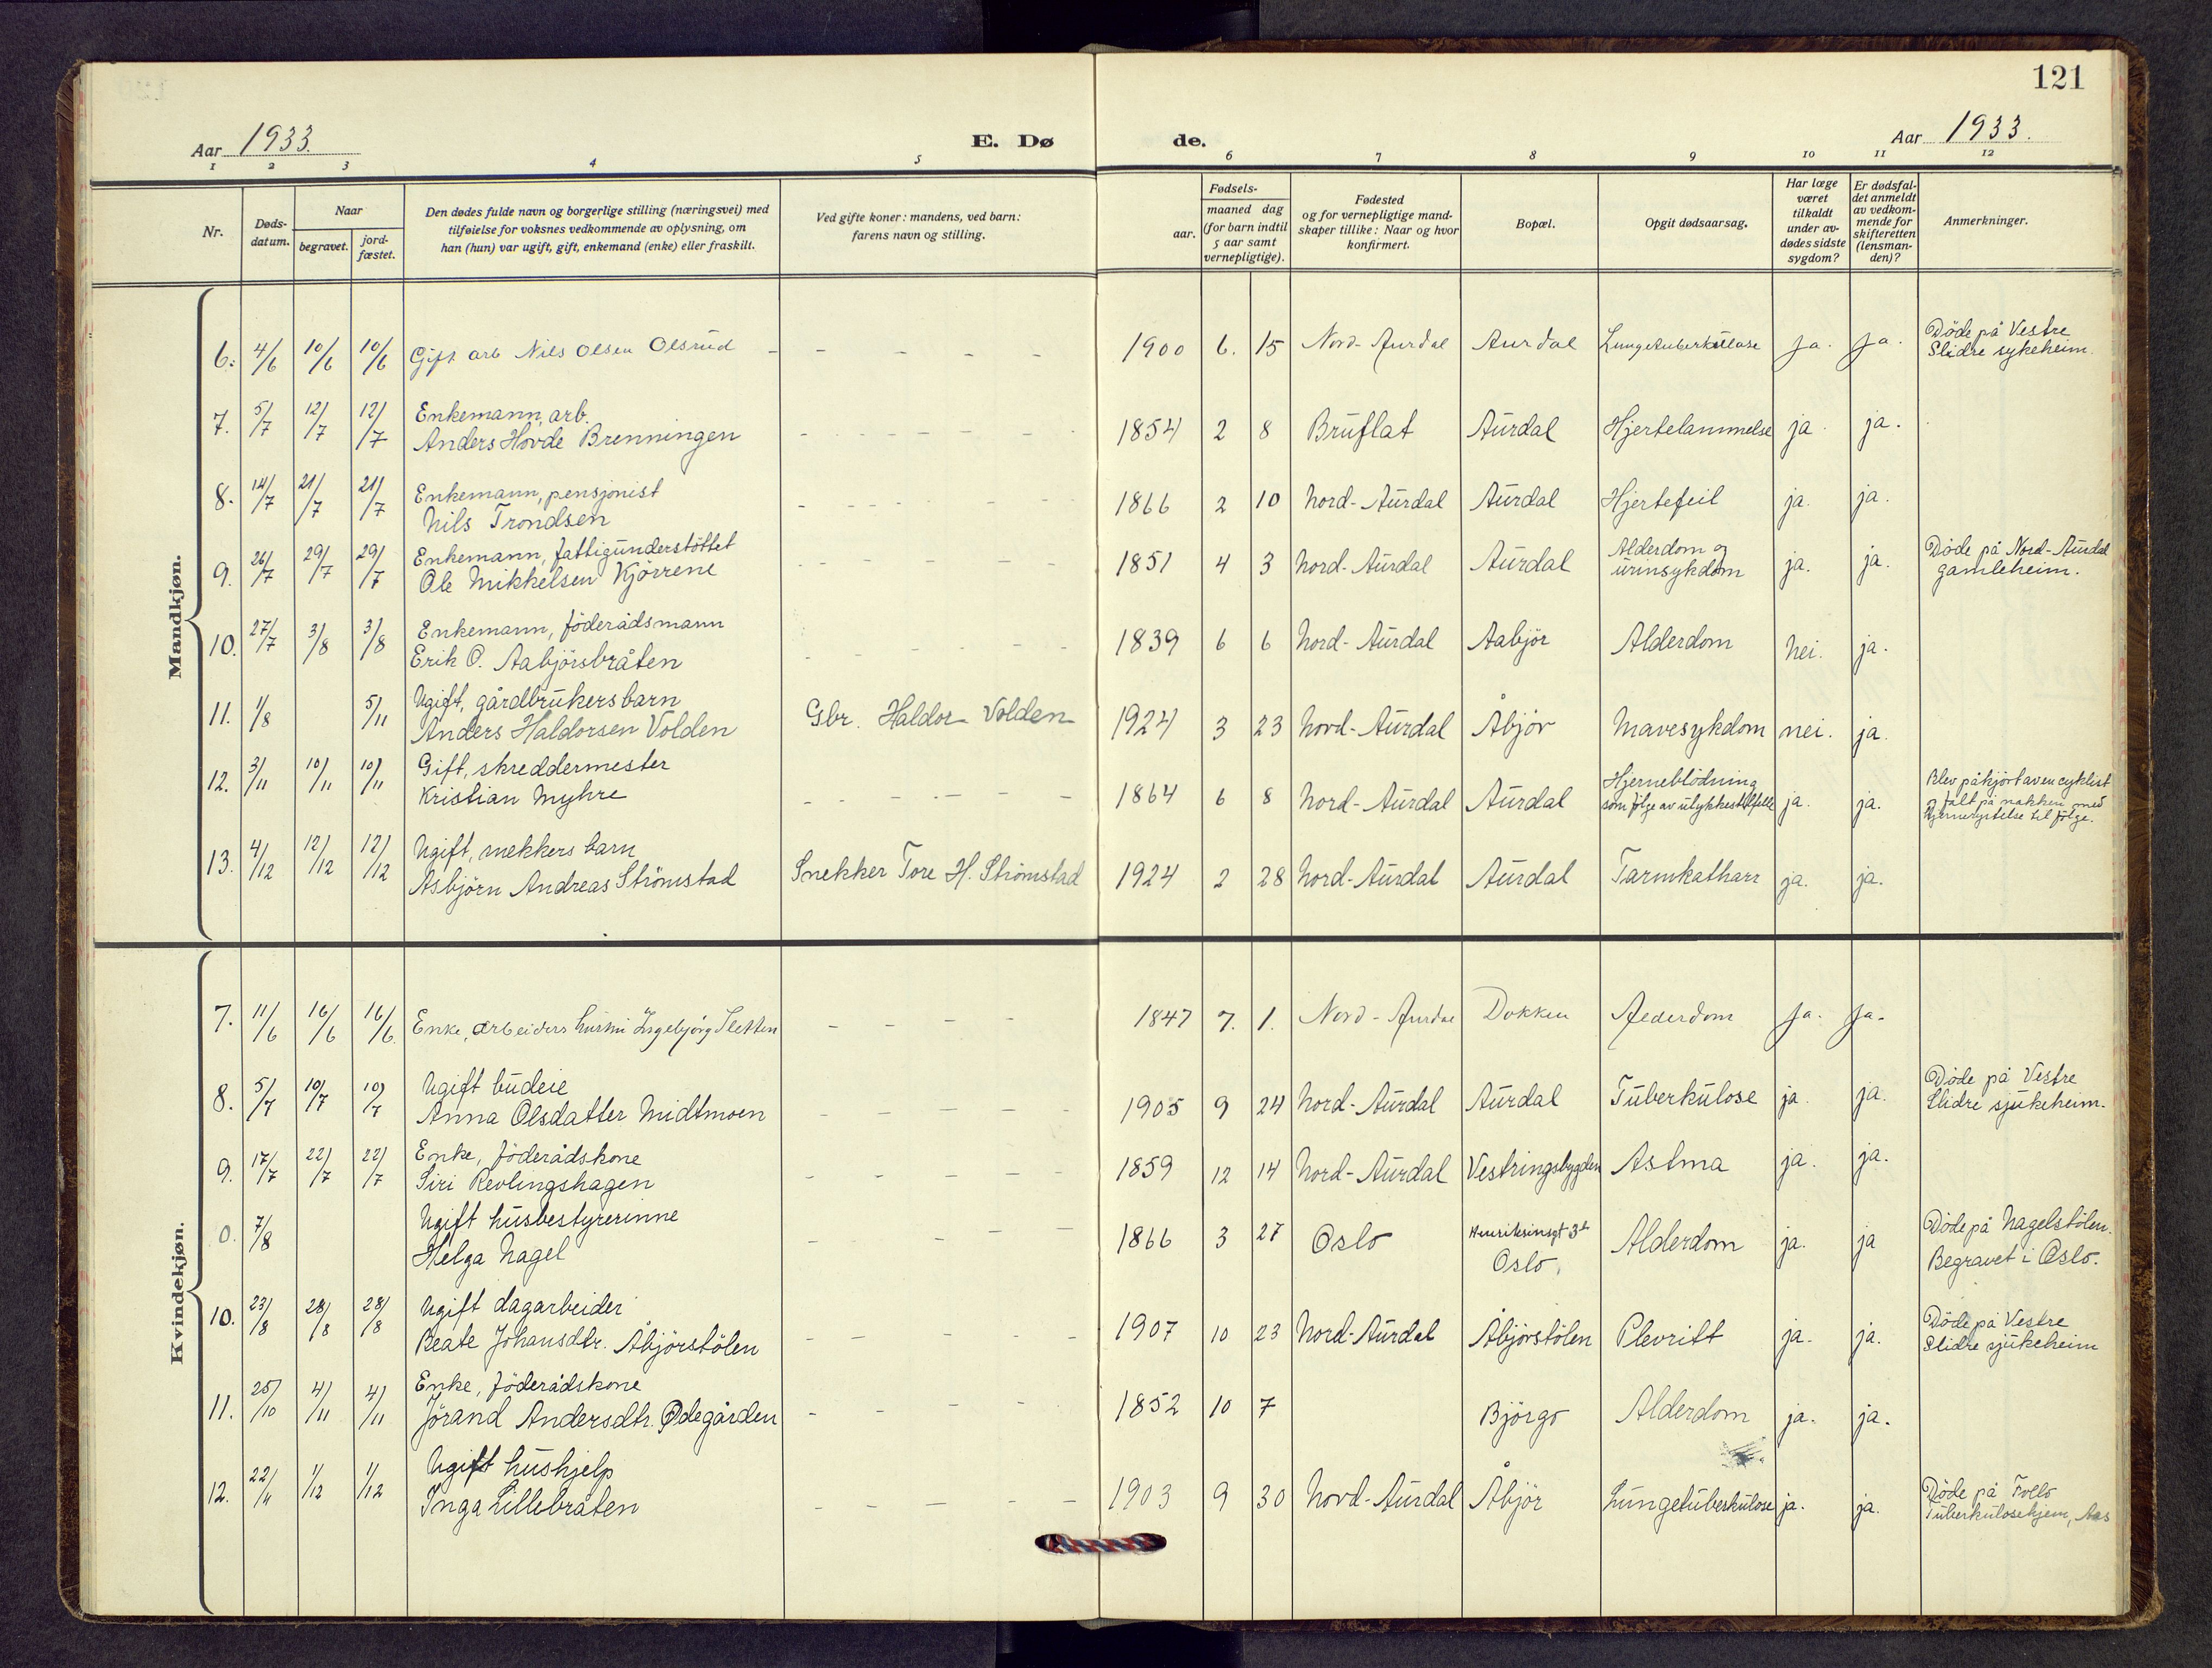 121
Aar 1933. E. Dø de. Aar 1933.
1 2 3 4 5 6 7 8 9 10 11 12
Nr.
Døds-
datum.
Naar
begravet.
jord-
fæstet.
Den dødes fulde navn og borgerlige stilling (næringsvei) med
tilføielse for voksnes vedkommende av oplysning, om
han (hun) var ugift, gift, enkemand (enke) eller fraskilt.
Ved gifte koner: mandens, ved barn:
farens navn og stilling.
aar.
Fødsels-
maaned dag
(for barn indtil
5 aar samt
vernepligtige).
Fødested
og for vernepligtige mand-
skaper tillike: Naar og hvor
konfirmert.
Bopæl.
Opgit dødsaarsag.
Har læge
været
tilkaldt
under av-
dødes sidste
sygdom?
Er dødsfal-
det anmeldt
av vedkom-
mende for
skifteretten
(lensman-
den)?
Anmerkninger.
Mandkjøn.
6. 4/6 10/6 10/6 Gift arb Nils Olsen Olsrud - - - - - 1900 6. 15 Nord-Aurdal Aurdal Lungetuberkulose ja. ja. Døde på Vestre
Slidre sykeheim.
7. 5/7 12/7 12/7 Enkemann, arb.
Anders Hovde Brenningen - - - - - - 1854 2 8 Bruflat Aurdal Hjertelammelse ja. ja.
8. 14/7 21/7 21/7 Enkemann, pensjonist
Nils Trondsen - - - - - - 1866 2 10 Nord-Aurdal Aurdal Hjertefeil ja. ja.
9. 26/7 29/7 29/7 Enkemann, fattigunderstöttet
Ole Mikkelsen Kjörrene - - - - - - 1851 4 3 Nord-Aurdal Aurdal Alderdom og
urinsykdom ja. ja. Döde på Nord-Aurdal
gamleheim.
10. 27/7 3/8 3/8 Enkemann, föderådsmann
Erik O. Aabjörsbråten - - - - - - 1839 6 6 Nord-Aurdal Aabjör Alderdom Nei. ja.
11. 1/8 5/11 Ugift, gårdbrukers barn
Anders Haldorsen Volden Gbr. Haldor Volden 1924 3 23 Nord-Aurdal Åbjör Mavesykdom nei. ja.
12. 3/11 10/11 10/11 Gift, skreddermester
Kristian Myhre - - - - - - 1864 6 8 Nord-Aurdal Aurdal Hjerneblödning
som fölge av ulykkestilfelle ja. ja. Blev påkjört av en cyklist
og falt på nakken med
hjernerystelse til fölge.
13. 4/12 12/12 12/12 Ugift, snekkers barn
Asbjörn Andreas Strömstad Snekker Tore H. Strömstad 1924 2 28 Nord-Aurdal Aurdal Tarmkatharr ja. ja.
Kvindekjøn.
7. 11/6 16/6 16/6. Enke, arbeiders hustru Ingebjörg Sletten - - - - 1847 7. 1. Nord-Aurdal Dokken Alderdom ja. ja.
8. 5/7 10/7 10/7 Ugift budeie
Anna Olsdatter Midtmoen - - - - - 1905 9 24 Nord-Aurdal Aurdal Tuberkulose ja. ja. Döde på Vestre
Slidre sjukeheim.
9. 17/7 22/7 22/7 Enke, föderådskone
Siri Revlingshagen - - - - - 1859 12 14 Nord-Aurdal Vestringsbygden Astma ja. ja.
0. 7/8 Ugift husbestyrerinne
Helga Nagel - - - - 1866 3 27 Oslo
Oslo, Alderdom ja. ja Döde på Nagelstölen.
Begravet i Oslo.
10. 23/8 28/8 28/8 Ugift dagarbeider
Beate Johansdtr. Åbjörstölen - - - - - 1907 10 23 Nord-Aurdal Åbjörstölen Plevritt ja. ja. Döde på Vestre
Slidre sjukeheim
11. 25/10 4/11 4/11 Enke, föderådskone
Jörand Andersdtr. Ødegården - - - - 1852 10 7 Björgo Alderdom ja. ja.
12. 22/11 1/12 1/12 Ugift hushjelp
Inga Lillebråten - - - - - 1903 9 30 Nord-Aurdal Åbjör Lungetuberkulose ja. ja. Döde på
Tuberkulosehjem, Aas